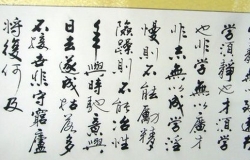 學須靜也才須學
也非學無以廣才
非志無以成學淫
慢則不能勵精
險躁則不能冶性
年與時馳意與
日去遂成枯落多
不接世悲守窮廬
將復何及